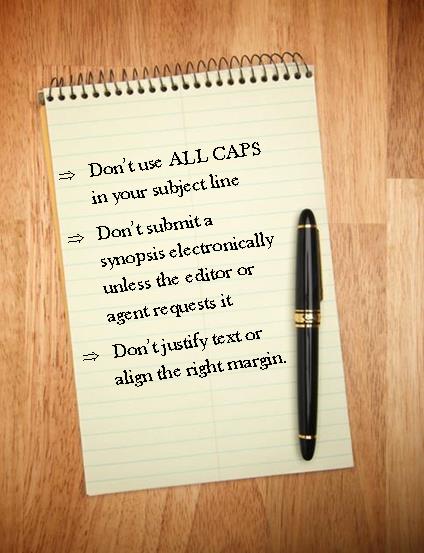 ⇒ Don't use ALL CAPS
in your subject line
⇒ Don't submit a
synopsis electronically
unless the editor or
agent requests it
⇒ Don't justify text or
align the right margin.